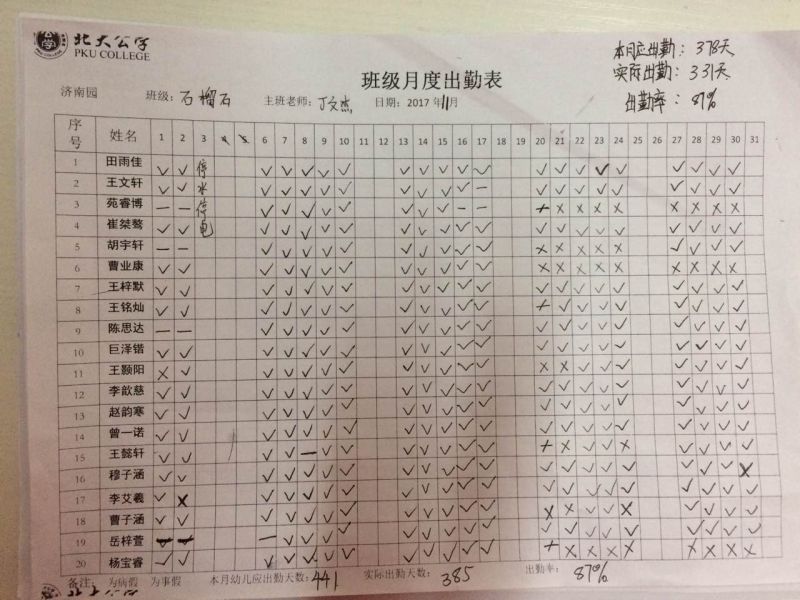 北大公学
PKU COLLEGE
本月应出勤：378天
实际出勤：331天
出勤率：87%
班级月度出勤表
济南园 班级：石榴石 主班老师：丁文杰 日期：2017年11月
序号 姓名 1 2 3 4 5 6 7 8 9 10 11 12 13 14 15 16 17 18 19 20 21 22 23 24 25 26 27 28 29 30 31
停水停电
1 田雨佳 ✓ ✓ ✓ ✓ ✓ ✓ ✓ ✓ ✓ ✓ ✓ ✓ ✓ ✓ ✓ ✓ ✓ ✓ ✓ ✓ ✓
2 王文轩
3 苑睿博
4 崔桀骜
5 胡宇轩
6 曹业康
7 王梓默
8 王铭灿
9 陈思达
10 巨泽锴
11 王颢阳
12 李歆慈
13 赵韵寒
14 曾一诺
15 王懿轩
16 穆子涵
17 李艾羲
18 曹子涵
19 岳梓萱
20 杨宝睿
备注： 为病假 为事假 本月幼儿应出勤天数：441 实际出勤天数：385 出勤率：87%